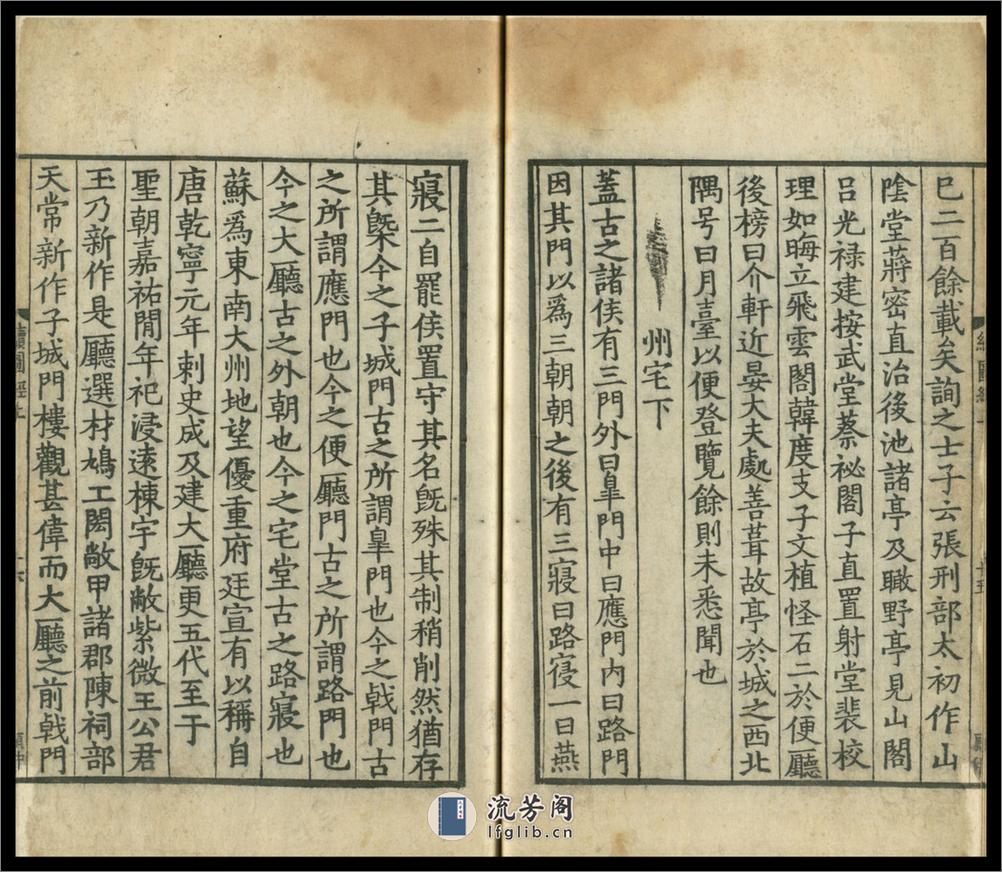 已二百餘載矣詢之士子云張刑部太初作山
陰堂蔣密直治後池諸亭及瞰野亭見山閣
吕光禄建按武堂蔡祕閣子直置射堂裴校
理如晦立飛雲閣韓度支子文植怪石二於便廳
後榜曰介軒近晏大夫處善葺故亭於城之西北
隅号曰月臺以便登覽餘則未悉聞也
州宅下
蓋古之諸侯有三門外曰臯門中曰應門内曰路門
因其門以爲三朝朝之後有三寢曰路寢一曰燕
寢二自罷侯置守其名旣殊其制稍削然猶存
其槩今之子城門古之所謂臯門也今之戟門古
之所謂應門也今之便廳門古之所謂路門也
今之大廳古之外朝也今之宅堂古之路寢也
蘇爲東南大州地望優重府廷宣有以稱自
唐乾寧元年刺史成及建大廳更五代至于
聖朝嘉祐閒年祀浸遠棟宇旣敝紫微王公君
玉乃新作是廳選材鳩工閎敞甲諸郡陳祠部
天常新作子城門樓觀甚偉而大廳之前戟門
續圖經上
十六
十五
流芳阁
lfglib.cn